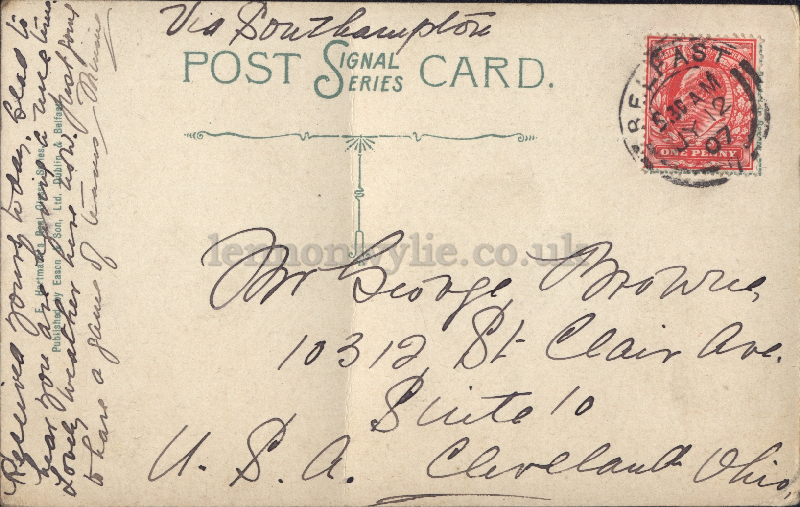 Via Southampton
POST SIGNAL SERIES CARD.
BELFAST
5.30 AM
JY 12
07
ONE PENNY
lennonwylie.co.uk
Mr George Browne,
10312, St Clair Ave.
Suite 10
Cleveland Ohio,
U. S. A.
Received yours today, Glad to
hear you are having a nice time
Lovely weather here now. Just going
to have a game of tennis Minnie
E. Hartmann's Real Glossy Series
Published by Eason & Son, Ltd. Dublin & Belfast